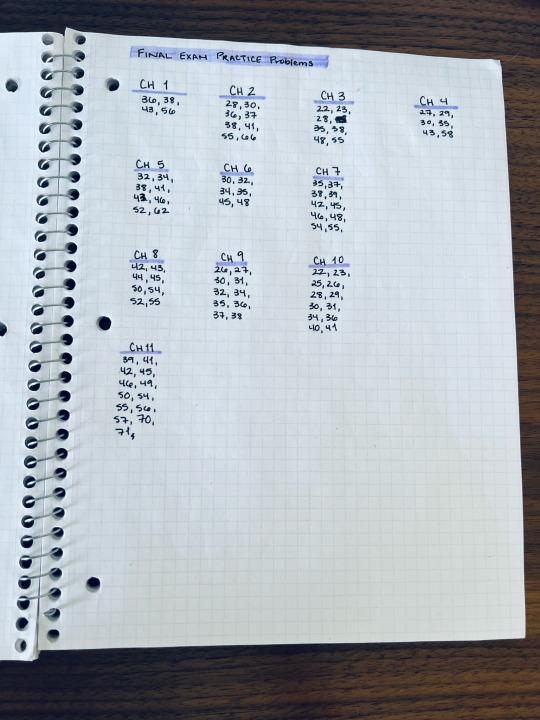 FINAL EXAM PRACTICE Problems
CH 1
36, 38,
43, 56
CH 2
28, 30,
36, 37
38, 41,
55, 66
CH 3
22, 23,
28,
35, 38,
48, 55
CH 4
27, 29,
30, 35,
43, 58
CH 5
32, 34,
38, 41,
43, 46,
52, 62
CH 6
30, 32,
34, 35,
45, 48
CH 7
35, 37,
38, 39,
42, 45,
46, 48,
54, 55,
CH 8
42, 43,
44, 45,
50, 54,
52, 55
CH 9
26, 27,
30, 31,
32, 34,
35, 36,
37, 38
CH 10
22, 23,
25, 26,
28, 29,
30, 31,
34, 36
40, 41
CH 11
39, 41,
42, 45,
46, 49,
50, 54,
55, 56,
57, 70,
71,